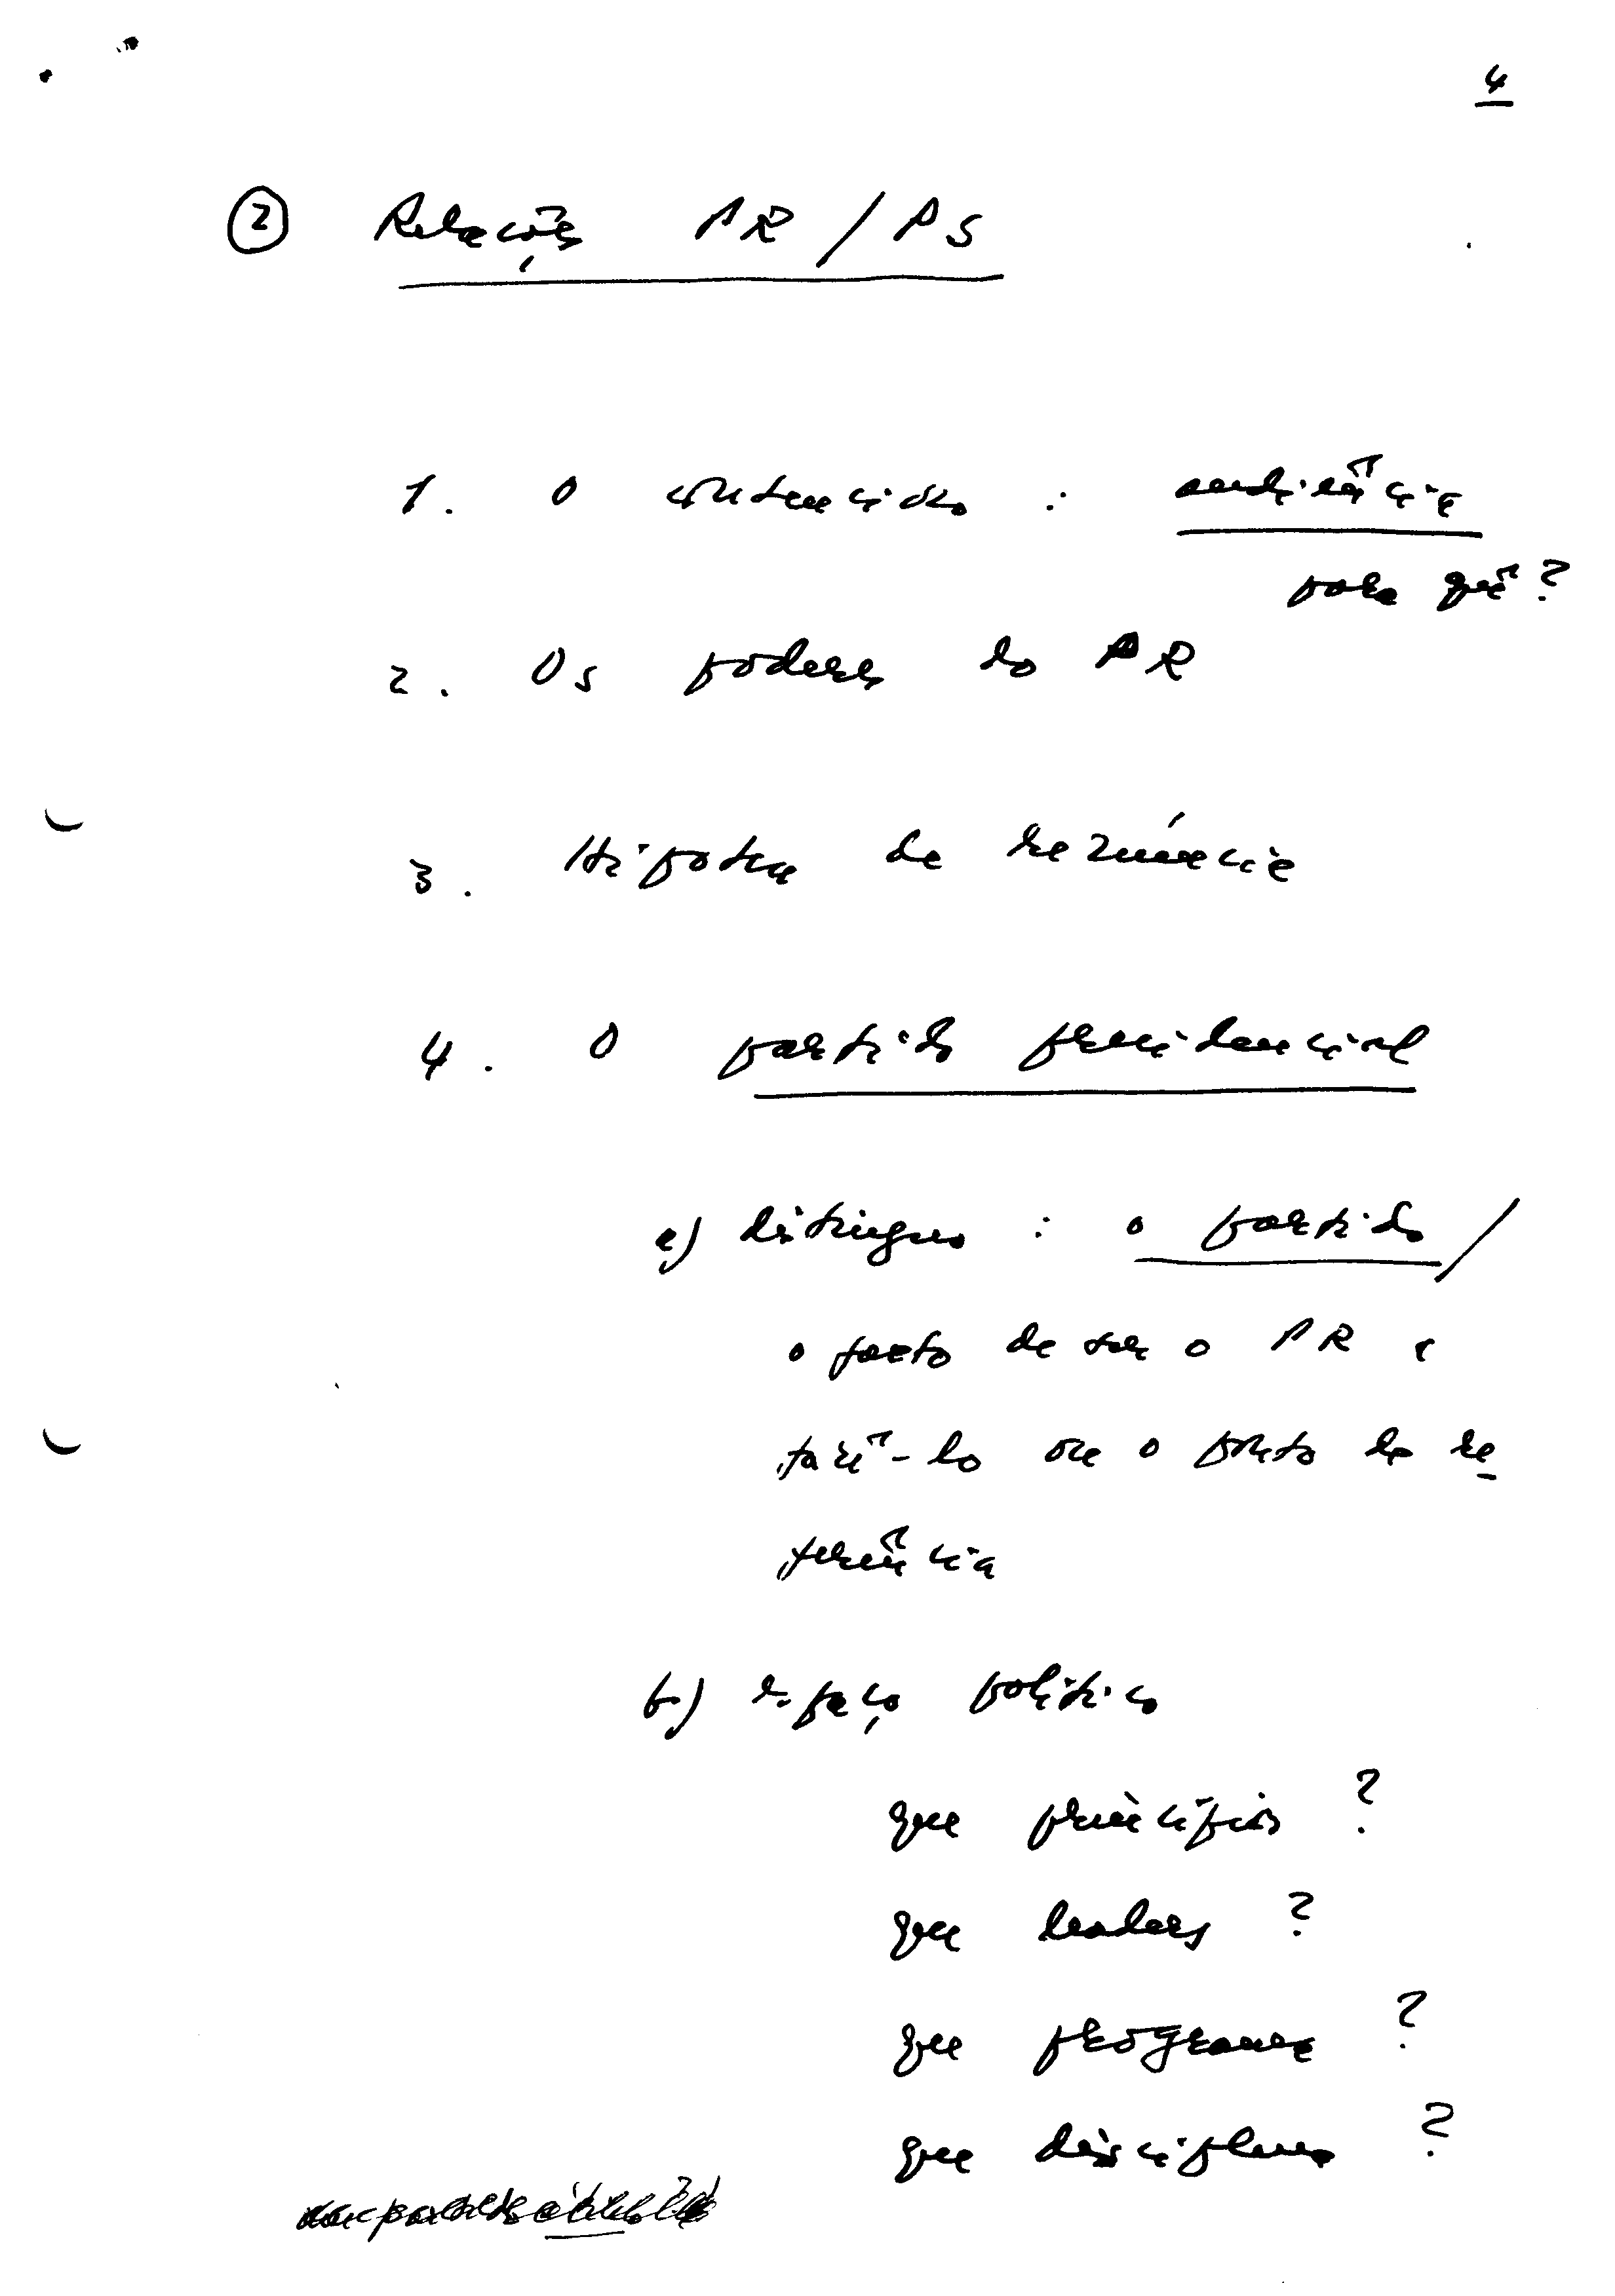 4
② Relações PR / PS
1. O contencioso : audiência
para quê?
2. Os poderes do PR
3. Hipótese de renúncia
4. O partido presidencial
a) distinguo : o partido /
o facto de ser o PR a
fazê-lo ou o ponto de re
ferência
b) espaço político
que princípios ?
que leaders ?
que programa ?
que disciplina ?